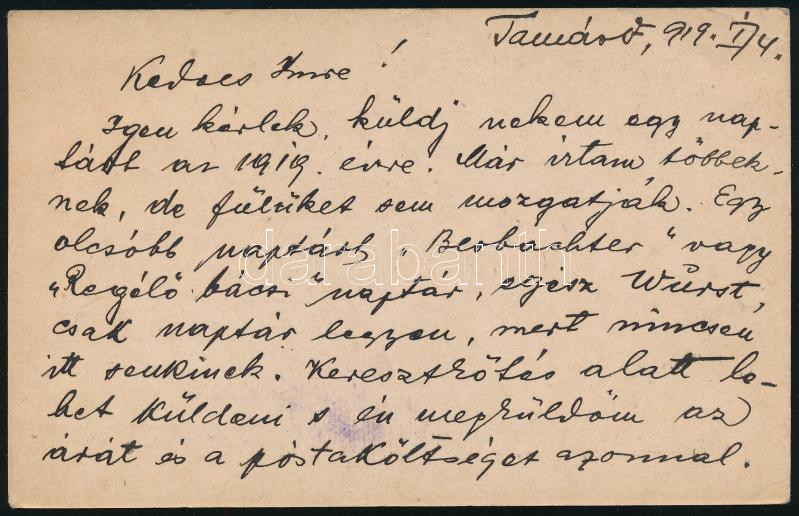 Tamási, 919. I/4.
Kedves Imre!
Igen kérlek, küldj nekem egy nap-
tárt az 1919. évre. Már irtam többek-
nek, de fülüket sem mozgatják. Egy
olcsóbb naptárt „Beobachter" vagy
„Regélő bácsi" naptár, egész Wurst,
csak naptár legyen, mert nincsen
itt senkinek. Keresztkötés alatt le-
het küldeni s én megküldöm az
árát és a póstaköltséget azonnal.
darabanth